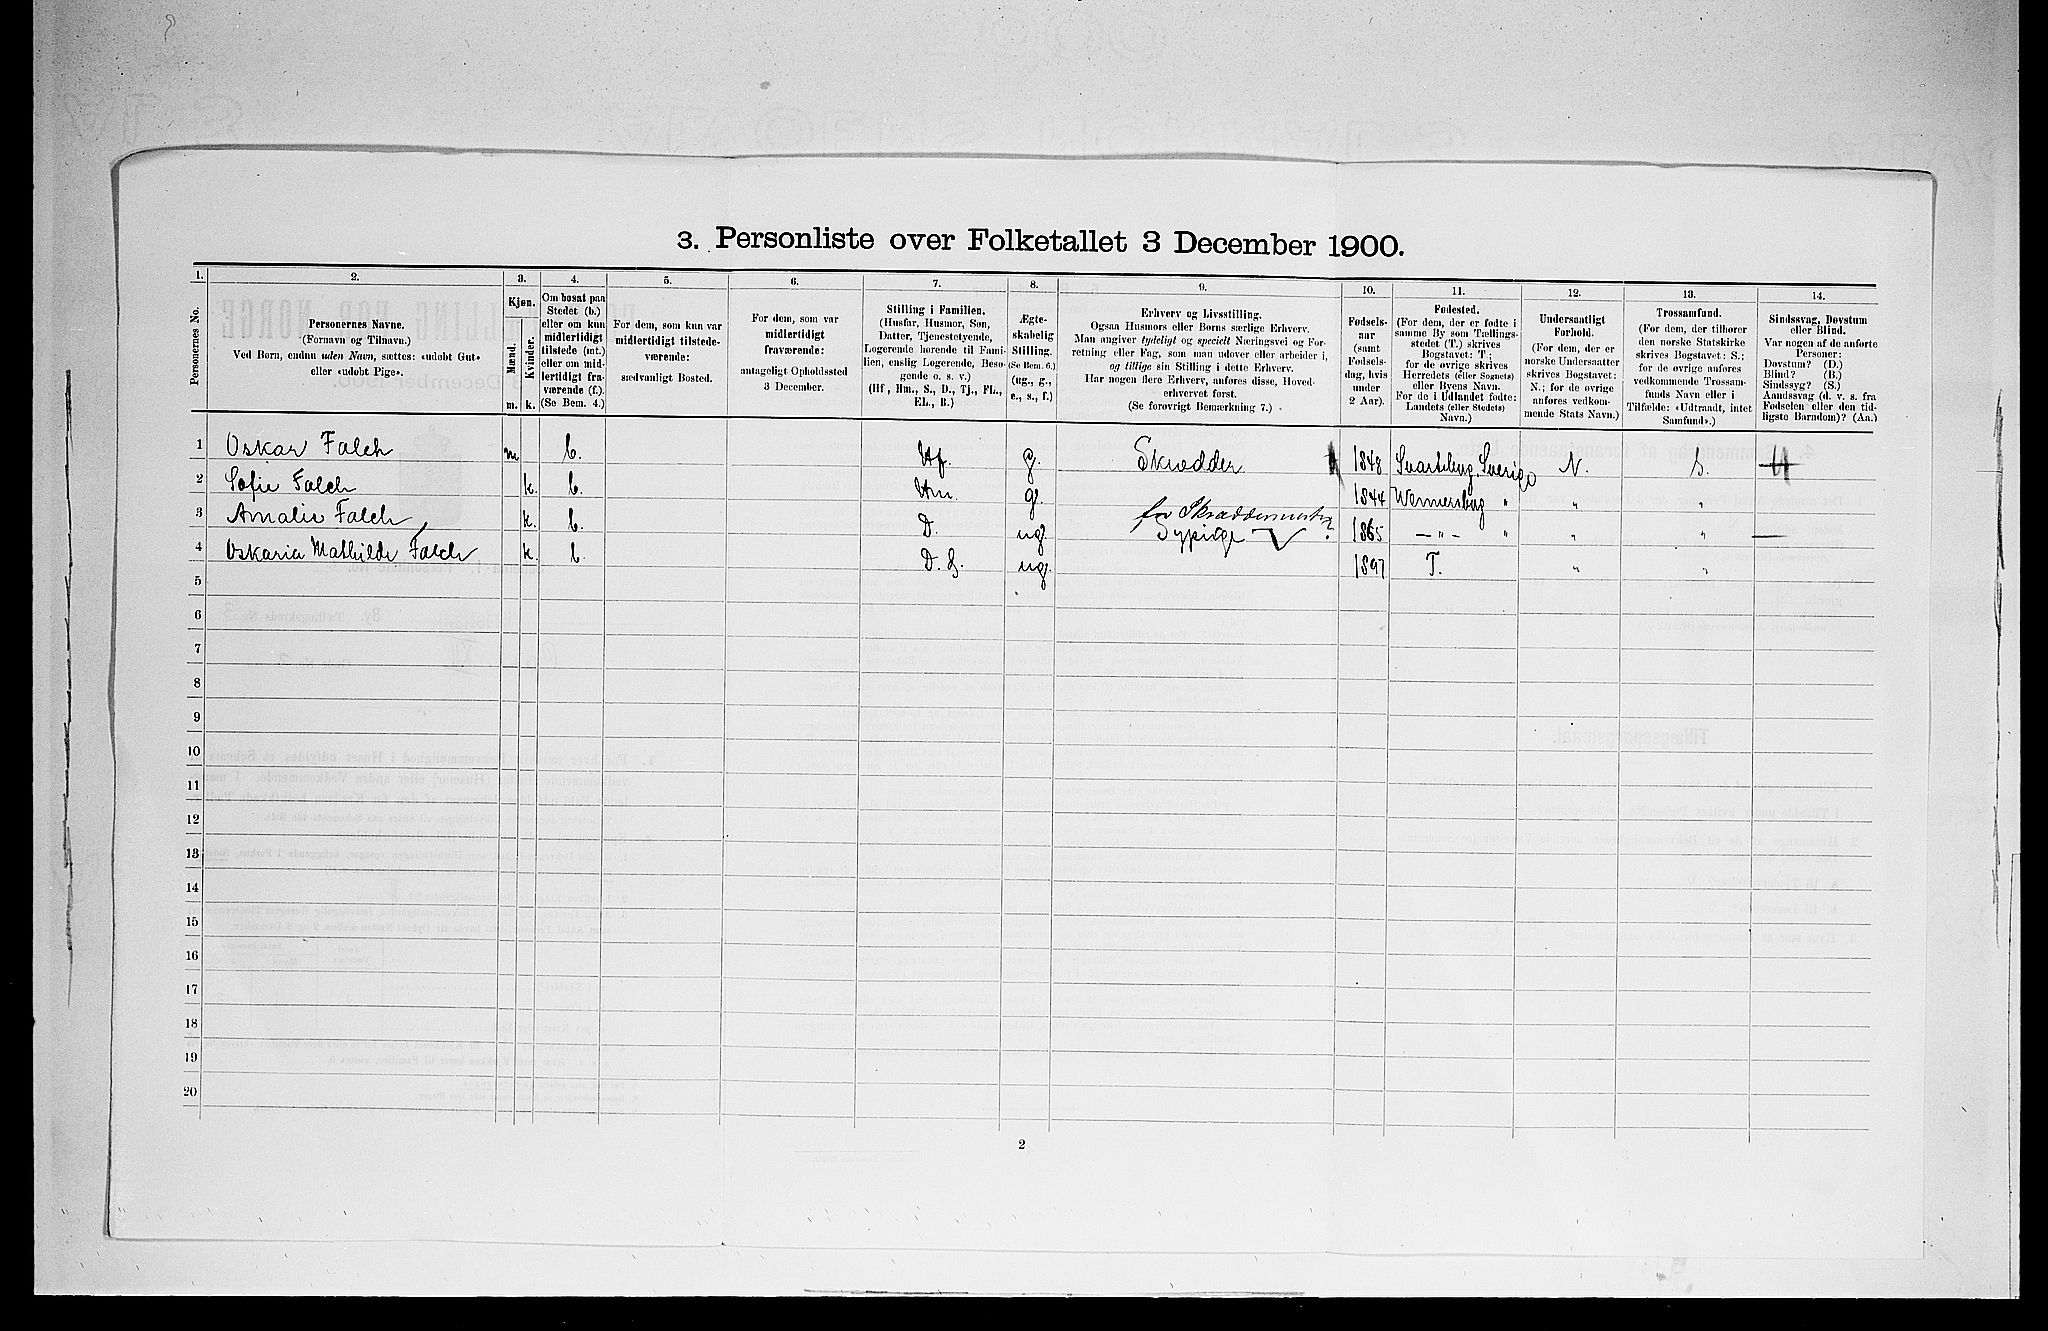 3. Personliste over Folketallet 3 December 1900.
1. 2. 3. 4. 5. 6. 7. 8. 9. 10. 11. 12. 13. 14.
Personernes No.
Personernes Navne.
(Fornavn og Tilnavn.)
Ved Børn, endnu uden Navn, sættes: «udøbt Gut»
eller «udøbt Pige».
Kjøn.
Mænd.
Kvinder.
m. k.
Om bosat paa
Stedet (b.)
eller om kun
midlertidigt
tilstede (mt.)
eller om mid-
lertidigt fra-
værende (f.).
(Se Bem. 4.)
For dem, som kun var
midlertidigt tilstede-
værende:
sædvanligt Bosted.
For dem, som var
midlertidigt
fraværende:
antageligt Opholdssted
3 December.
Stilling i Familien.
(Husfar, Husmor, Søn,
Datter, Tjenestetyende,
Logerende hørende til Fami-
lien, enslig Logerende, Besø-
gende o. s. v.)
(Hf, Hm., S., D., Tj., FL.,
EL., B.)
Ægte-
skabelig
Stilling.
(Se Bem. 6.)
(ug., g.,
e., s., f.)
Erhverv og Livsstilling.
Ogsaa Husmors eller Børns særlige Erhverv.
Man angiver tydeligt og specielt Næringsvei og For-
retning eller Fag, som man udøver eller arbeider i,
og tillige sin Stilling i dette Erhverv.
Har nogen flere Erhverv, anføres disse, Hoved-
erhvervet først.
(Se forøvrigt Bemærkning 7.)
Fødsels-
aar
(samt
Fødsels-
dag, hvis
under
2 Aar).
Fødested.
(For dem, der er fødte i
samme By som Tællings-
stedet (T.) skrives
Bogstavet: T;
for de øvrige skrives
Herredets (eller Sognets)
eller Byens Navn.
For de i Udlandet fødte:
Landets (eller Stedets)
Navn.)
Undersaatligt
Forhold.
(For dem, der er
norske Undersaatter
skrives Bogstavet:
N.; for de øvrige
anføres vedkom-
mende Stats Navn.)
Trossamfund.
(For dem, der tilhører
den norske Statskirke
skrives Bogstavet: S.;
for de øvrige anføres
vedkommende Trossam-
funds Navn eller i
Tilfælde: «Udtraadt, intet
Samfund».)
Sindssvag, Døvstum
eller Blind.
Var nogen af de anførte
Personer:
Døvstum? (D.)
Blind? (B.)
Sindssyg? (S.)
Aandssvag (d. v. s. fra
Fødselen eller den tid-
ligste Barndom)? (Aa.)
1 Oskar Falch m b. Hf. g. Skrædder 1848 Svarteborg Sverige N. S.
2 Sofie Falch k. b. Hm g. 1844 Wennersborg " " "
3 Amalie Falch k. b. D. ug. for Skræddermester Sypige 1865 – " – " " "
4 Oskaria Mathilde Falch k. b. D. S. ug. 1897 T. " "
5
6
7
8
9
10
11
12
13
14
15
16
17
18
19
20
2